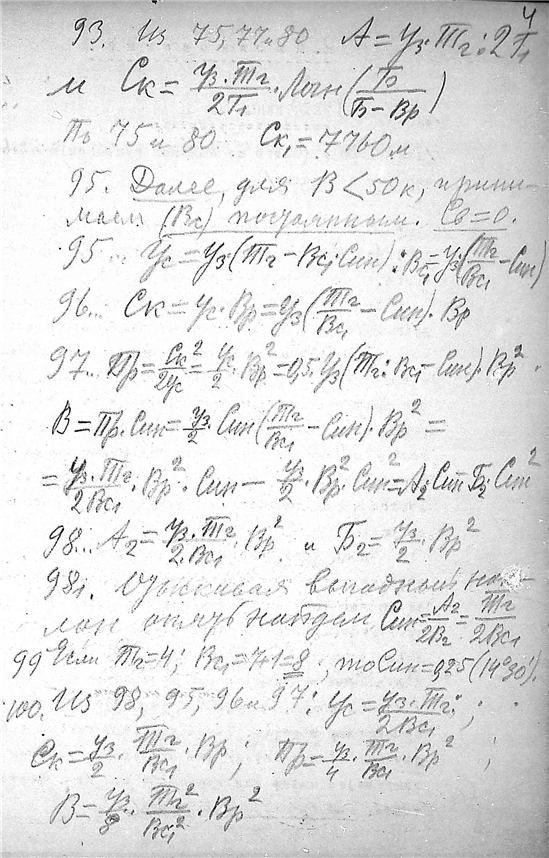 4
93. Из 75, 77 и 80 А = Уз·Тг : 2Т₁
и Ск = Уз·Тг/2Т₁ · Логн (Бз/(Б – Вр))
По 75 и 80 Ск₁ = 7760 м
95. Далее, для В < 50 к, прини-
маем (Вс) постоянным. Со = 0.
95. Ус = Уз (Тг – Вс₁·Син) : Вс₁ = Уз (Тг/Вс₁ – Син)
96.. Ск = Ус·Вр = Уз (Тг/Вс₁ – Син)·Вр
97.. Пр = Ск²/2Ус = Ус/2 · Вр² = 0,5·Уз (Тг : Вс₁ – Син)·Вр²
В = Пр·Син = Уз/2 Син (Тг/Вс₁ – Син)·Вр² =
= Уз·Тг/2Вс₁ · Вр²·Син – Уз/2 · Вр²·Син² = А₂·Син – Б₂·Син²
98.. А₂ = Уз·Тг/2·Вс₁ · Вр² и Б₂ = Уз/2 · Вр²
98₁. Отыскивая выгодный нак-
лон опять найдем Син = А₂/2Б₂ = Тг/2Вс₁
99 Если Тг = 4; Вс₁ = 7+1 = 8, то Син = 0,25 (14°30').
100. Из 98, 95, 96 и 97: Ус = Уз·Тг/2Вс₁;
Ск = Уз/2 · Тг/Вс₁ · Вр; Пр = Уз/4 · Тг/Вс₁ · Вр²;
В = Уз/8 · Тг²/Вс₁² · Вр²